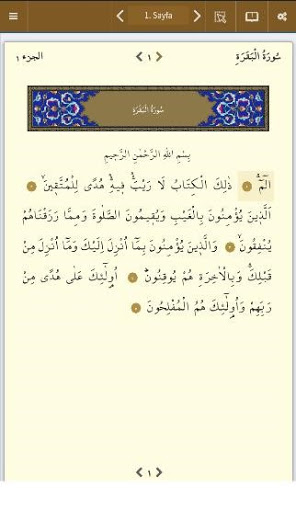 1. Sayfa
سُورَةُ الْبَقَرَةِ
١
الجزء ١
سُورَةُ الْبَقَرَةِ
بِسْمِ اللهِ الرَّحْمٰنِ الرَّحِيمِ
الٓمٓ ۚ ذٰلِكَ الْكِتَابُ لَا رَيْبَۚۛ ف۪يهِۚۛ هُدًى لِلْمُتَّق۪ينَۙ
اَلَّذ۪ينَ يُؤْمِنُونَ بِالْغَيْبِ وَيُق۪يمُونَ الصَّلٰوةَ وَمِمَّا رَزَقْنَاهُمْ
يُنْفِقُونَۙ وَالَّذ۪ينَ يُؤْمِنُونَ بِمَٓا اُنْزِلَ اِلَيْكَ وَمَٓا اُنْزِلَ مِنْ
قَبْلِكَۚ وَبِالْاٰخِرَةِ هُمْ يُوقِنُونَۜ اُو۬لٰٓئِكَ عَلٰى هُدًى مِنْ
رَبِّهِمْ وَاُو۬لٰٓئِكَ هُمُ الْمُفْلِحُونَ
١